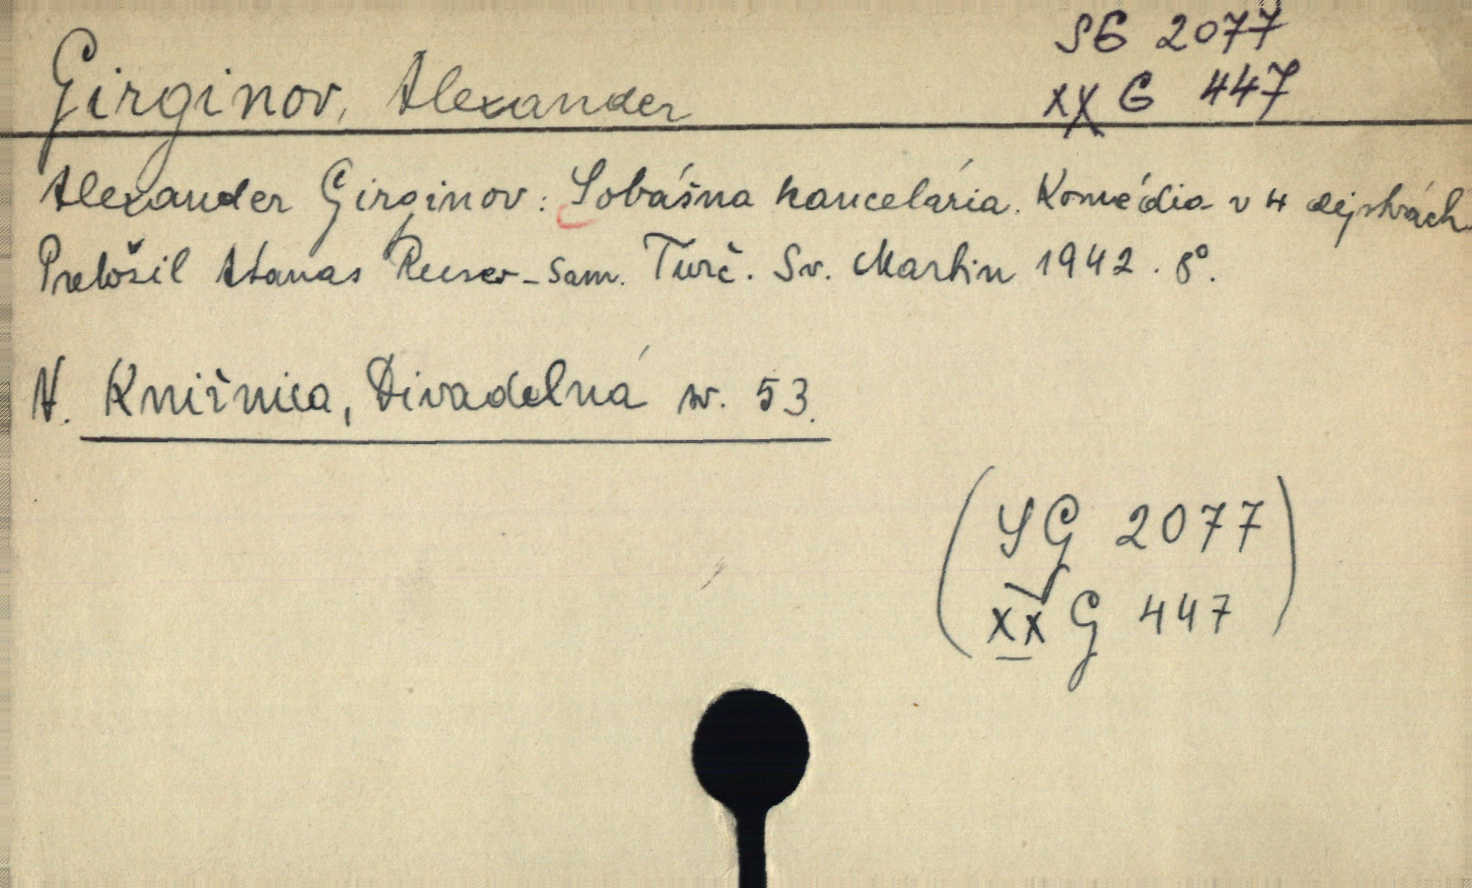 SG 2077
Girginov, Alexander
XX G 447
Alexander Girginov: Sobášna kancelária. Komédia v 4 dejstvách.
Preložil Atanas Ruser-Sam. Turč. Sv. Martin 1942. 8°.
A. Knižnica, Divadelná sv. 53.
(SG 2077
XX G 447)